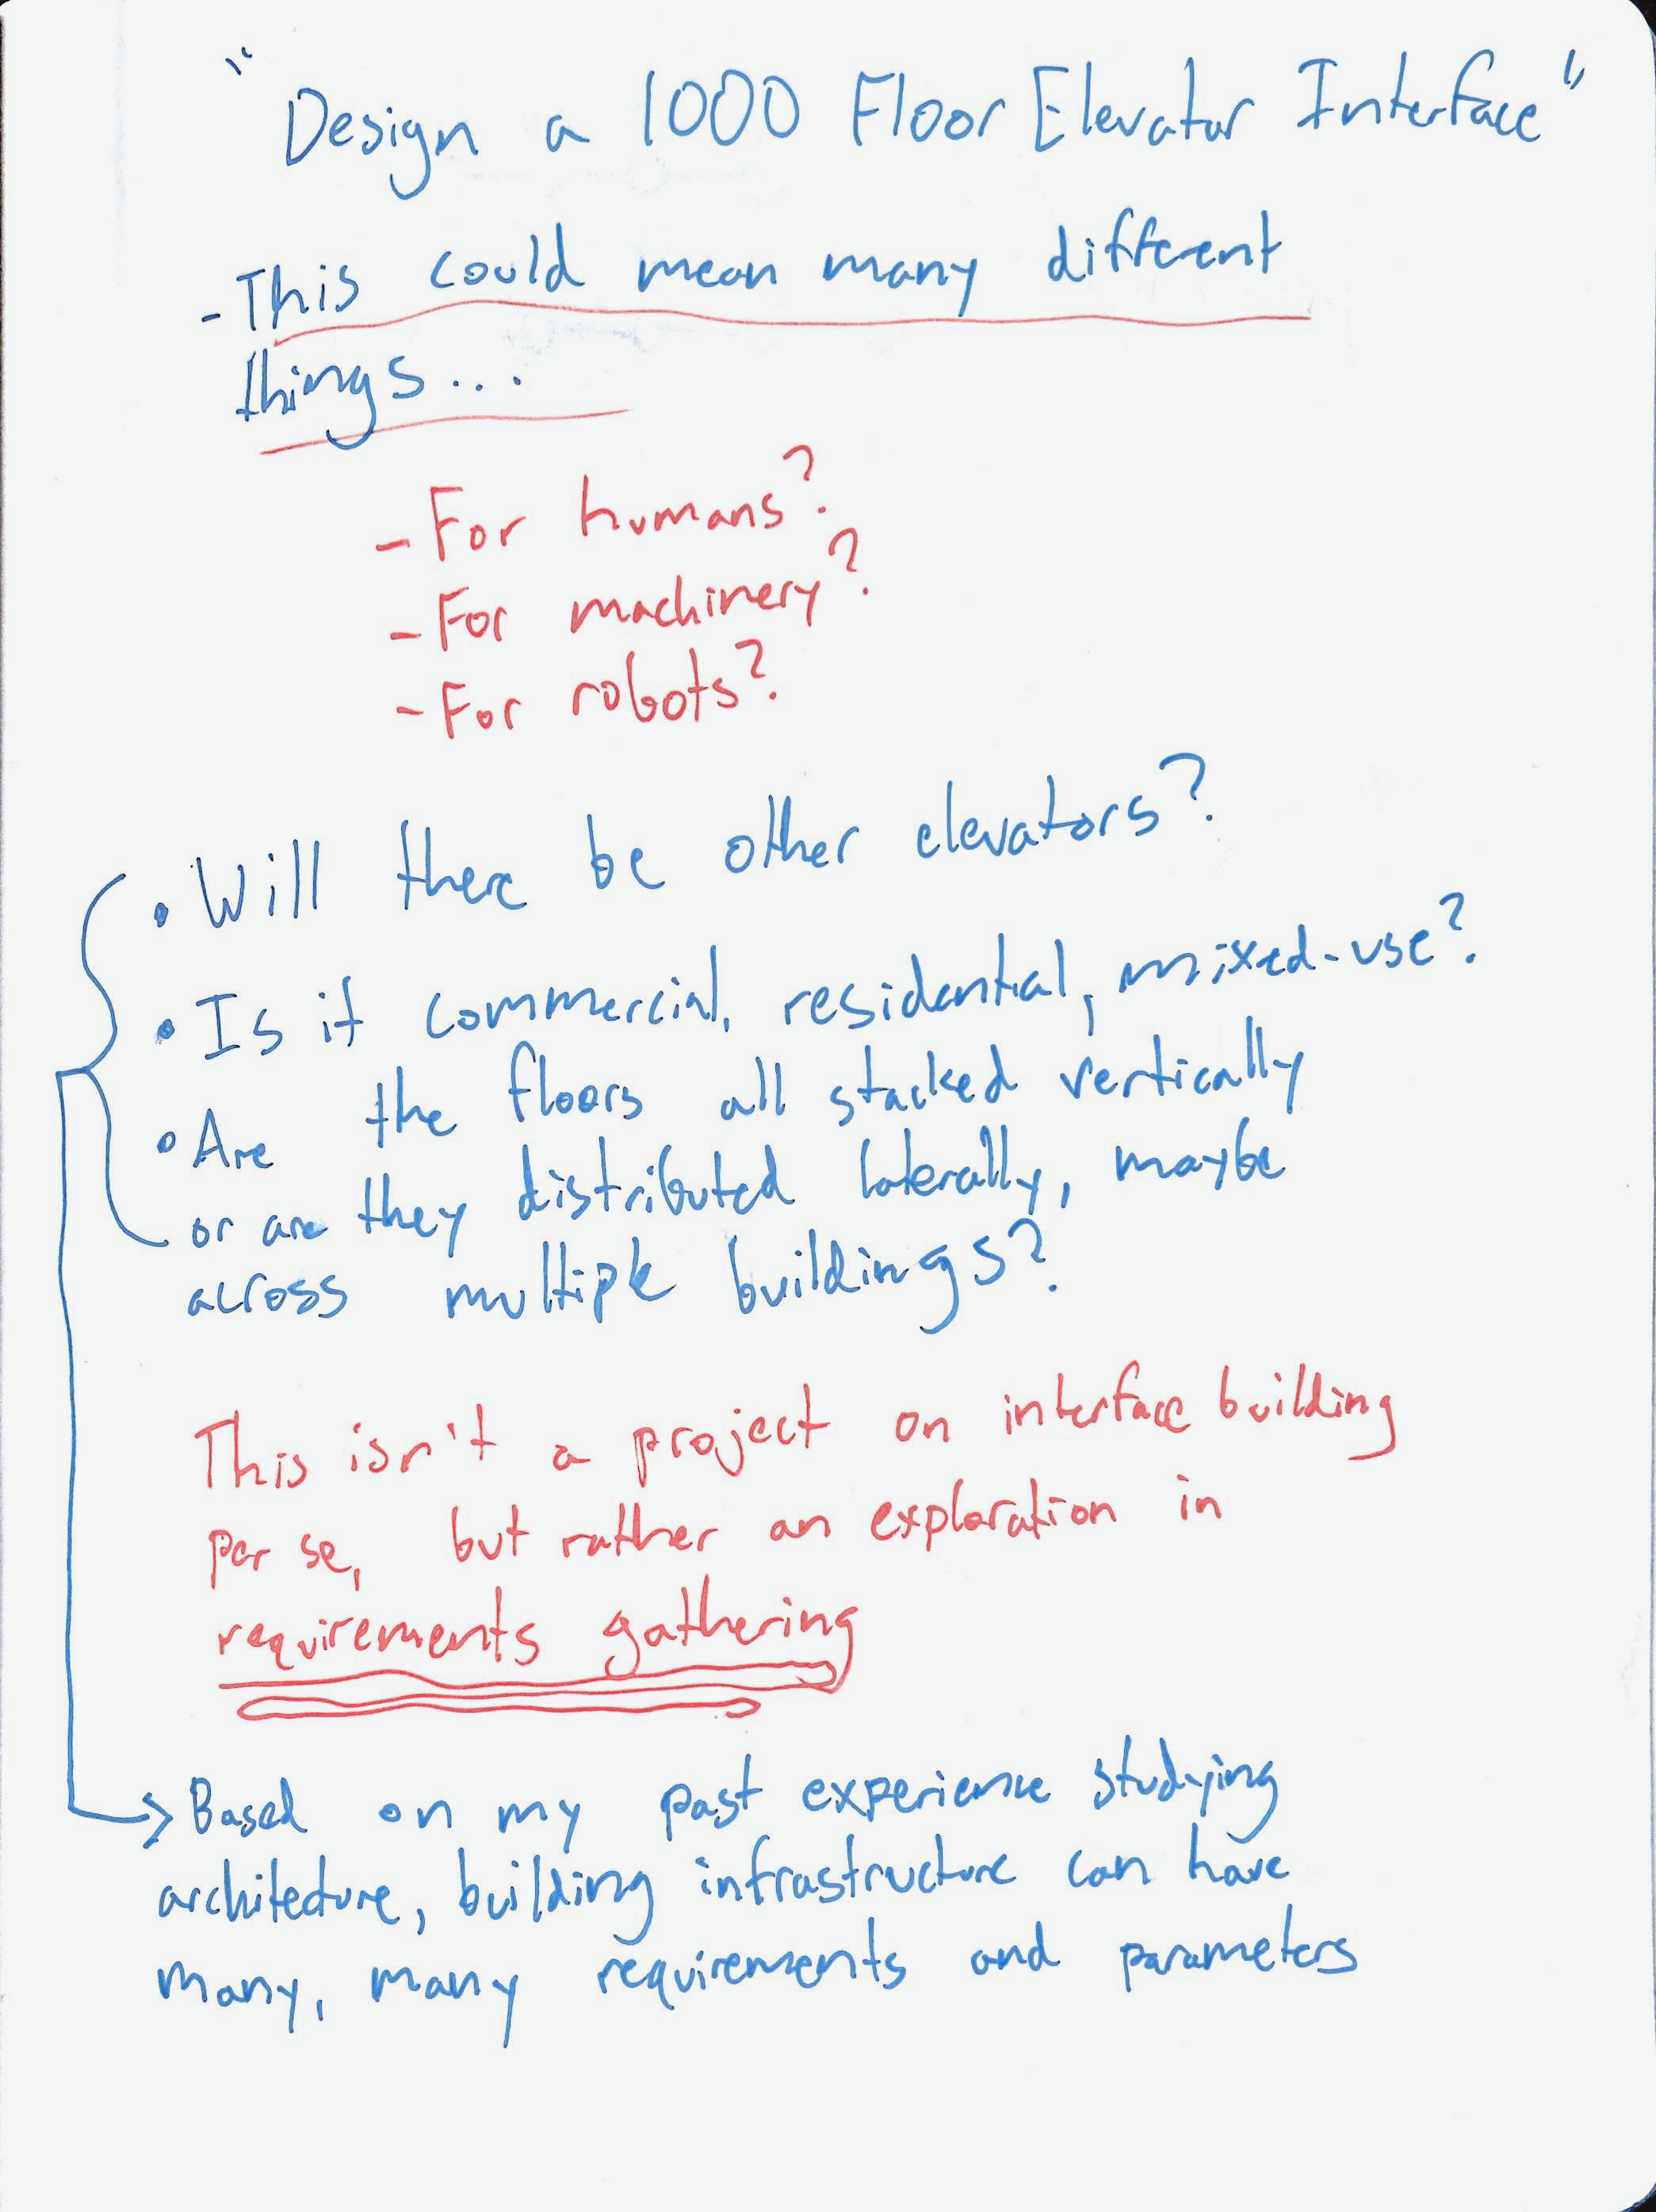 "Design a 1000 Floor Elevator Interface"
- This could mean many different
things...
- For humans?
- For machinery?
- For robots?
• Will there be other elevators?
• Is it commercial, residential, mixed-use?
• Are the floors all stacked vertically
or are they distributed laterally, maybe
across multiple buildings?
This isn't a project on interface building
per se, but rather an exploration in
requirements gathering
→ Based on my past experience studying
architecture, building infrastructure can have
many, many requirements and parameters